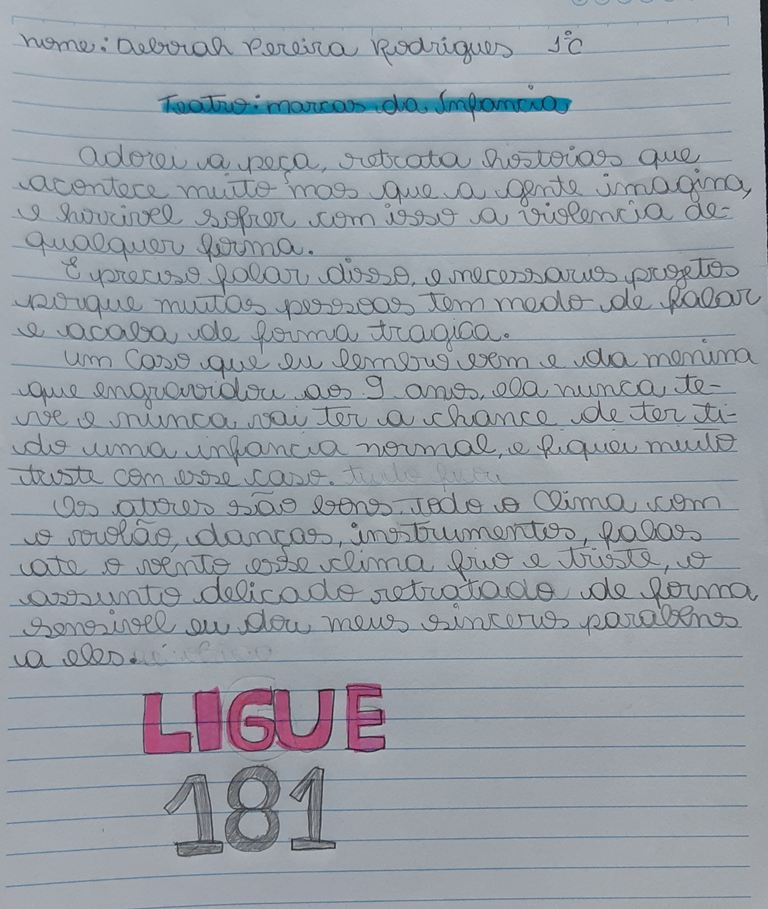 nome: Deborah Pereira Rodrigues 1°C
Teatro: marcas da Infancia
adorei a peça, retrata histórias que
acontece muito mas que a gente imagina,
e horrivel sofrer com isso a violencia de-
qualquer forma.
É preciso falar disso, e necessarios projetos
porque muitas pessoas tem medo de falar
e acaba de forma tragica.
um caso que eu lembro bem e da menina
que engravidou aos 9 anos, ela nunca te-
ve e nunca vai ter a chance de ter ti-
do uma infancia normal, e fiquei muito
triste com esse caso.
Os atores são bons. Todo o clima com
o violão, danças, instrumentos, falas
ate o vento esse clima frio e triste, o
assunto delicado retratado de forma
sensivel eu dou meus sinceros parabens
a eles.
LIGUE
181